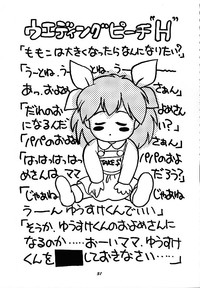 ウエディングピーチ"H"
「ももこは大きくなったらなんになりたい?」
「うーとね、うーとね、う
あっ、およめさん
「だれのおよめさん
になるんだ
「パパのおよめさぁん」
「はっはっはっ、パパの
よめさんは、ママだろう?」
「じゃあねじゃあね
うーーん ゆうすけくんでいい」
「そうか、ゆうすけくんのおよめさんに
なるのか……おーいママ、ゆうすけ
くんを しておきなさい……」
TAKE S
31